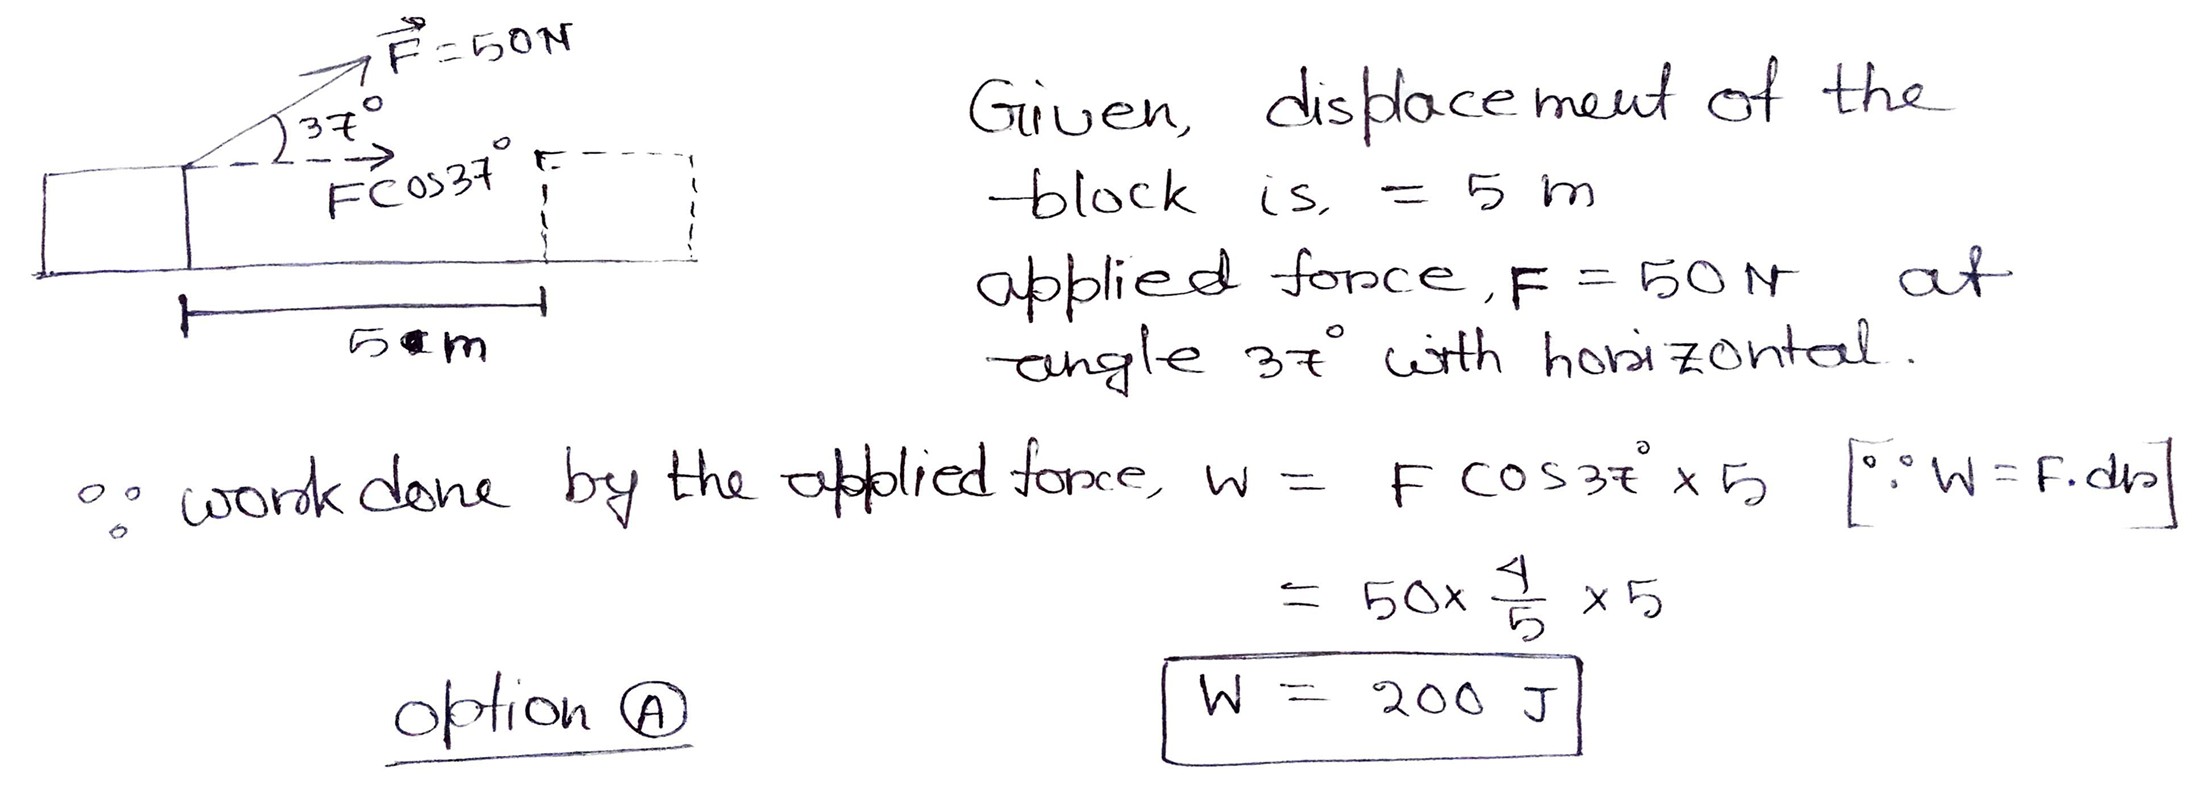 F⃗ = 50N
37°
FCOS37°
5 m
Given, displacement of the
block is, = 5 m
applied force, F = 50N at
angle 37° with horizontal.
∴ work done by the applied force, W = F COS37° × 5 [∵ W = F.ds]
= 50 × 4/5 × 5
W = 200 J
option Ⓐ